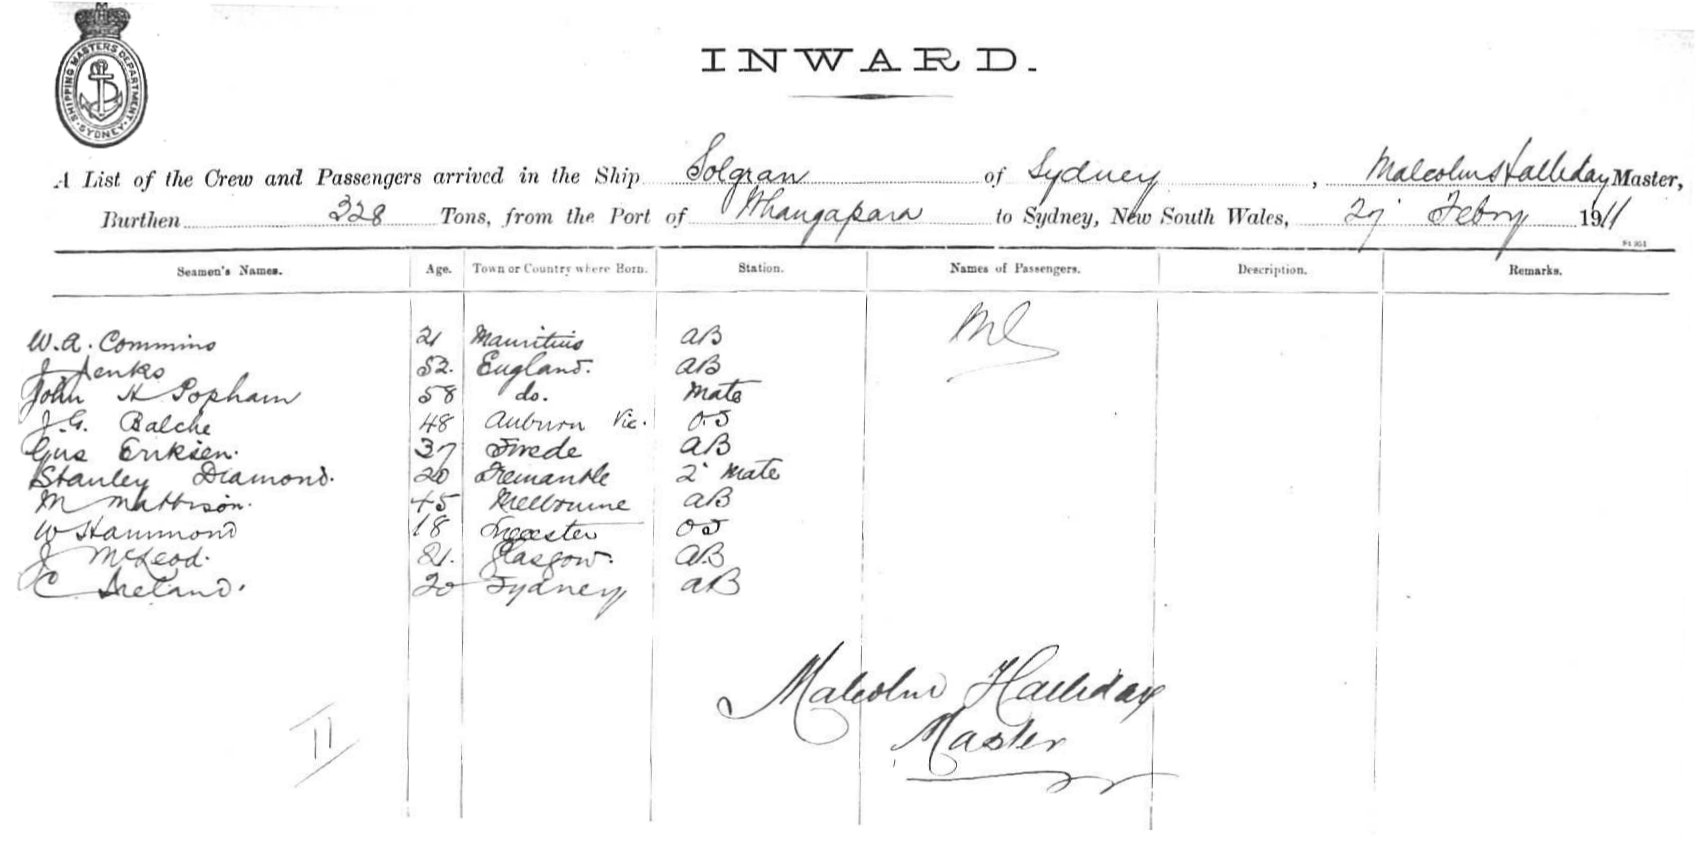 SHIPPING MASTERS DEPARTMENT · SYDNEY ·
INWARD.
A List of the Crew and Passengers arrived in the Ship Solgran of Sydney, Malcolm Halliday Master,
Burthen 328 Tons, from the Port of Whangapara to Sydney, New South Wales, 27 Febry 1911
Seamen's Names. Age. Town or Country where Born. Station. Names of Passengers. Description. Remarks.
W. A. Commins 21 Mauritius AB
J Jenks 52. England. AB
John H Popham 58 do. Mate
J. G. Balche 48 Auburn Vic. OS
Gus Eriksen. 37 Swede AB
Stanley Diamond. 20 Fremantle 2 Mate
M Mattison. 45 Melbourne AB
W Hammond 18 Leicester OS
J McLeod. 21. Glasgow. AB
C Ireland. 20 Sydney AB
Malcolm Halliday
Master
11